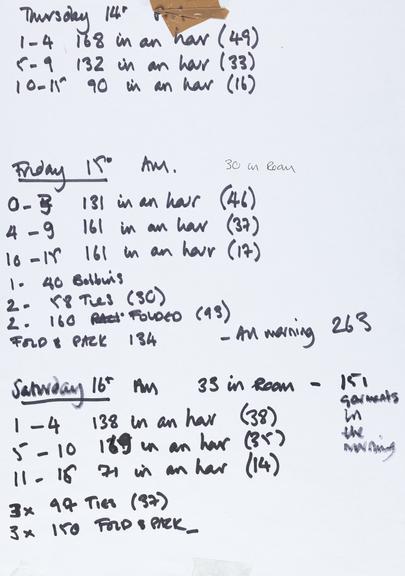 Thursday 14th
1-4 168 in an hour (49)
5-9 132 in an hour (33)
10-15 90 in an hour (16)
Friday 15th AM. 30 in Room
0-3 131 in an hour (46)
4-9 161 in an hour (37)
10-15 161 in an hour (17)
1- 40 Bobbins
2- 58 TIES (30)
2- 160 FOLDED (93)
FOLD & PACK 134 - AM morning 263
Saturday 16th Am 33 in Room - 151 garments in the morning
1-4 138 in an hour (38)
5-10 169 in an hour (35)
11-16 71 in an hour (14)
3x 97 TIES (37)
3x 150 FOLD & PACK